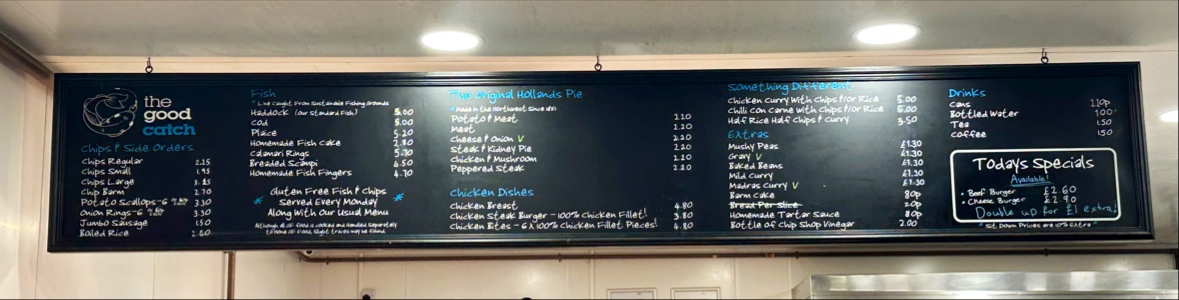 the
good
catch
Chips & Side Orders
Chips Regular 2.25
Chips Small 1.95
Chips Large
Chip Barm 2.70
Potato Scallops - 6 3.30
Onion Rings - 6 3.30
Jumbo Sausage 1.50
Boiled Rice 2.60
Fish
* Line Caught From Sustainable Fishing Grounds
Haddock (our Standard Fish) 5.00
Cod 5.00
Plaice 5.20
Homemade Fish Cake 2.80
Calamari Rings
Breaded Scampi 4.50
Homemade Fish Fingers 4.70
* Gluten Free Fish & Chips *
Served Every Monday
Along With Our Usual Menu
Although all our food is cooked and handled separately
The Original Hollands Pie
* Made in the Northwest Since 1851
Potato & Meat 2.20
Meat 2.20
Cheese & Onion V 2.20
Steak & Kidney Pie 2.20
Chicken & Mushroom 2.20
Peppered Steak 2.20
Chicken Dishes
Chicken Breast 4.80
Chicken Steak Burger - 100% Chicken Fillet! 3.80
Chicken Bites - 6 x 100% Chicken Fillet Pieces! 4.80
Something Different
Chicken Curry With Chips &/Or Rice 5.00
Chilli Con Carne with Chips &/or Rice 5.00
Half Rice Half Chips & Curry 3.50
Extras
Mushy Peas £1.30
Gravy V £1.30
Baked Beans £1.30
Mild Curry £1.30
Madras Curry V £1.30
Barm Cake 80p
Bread Per Slice 20p
Homemade Tartar Sauce 80p
Bottle of Chip Shop Vinegar 2.00
Drinks
Cans 110p
Bottled Water 1.00
Tea 1.50
Coffee 1.50
Todays Specials
Available!
• Beef Burger £2.60
• Cheese Burger £2.90
Double up for £1 extra!
* Sit Down Prices are 10% Extra *